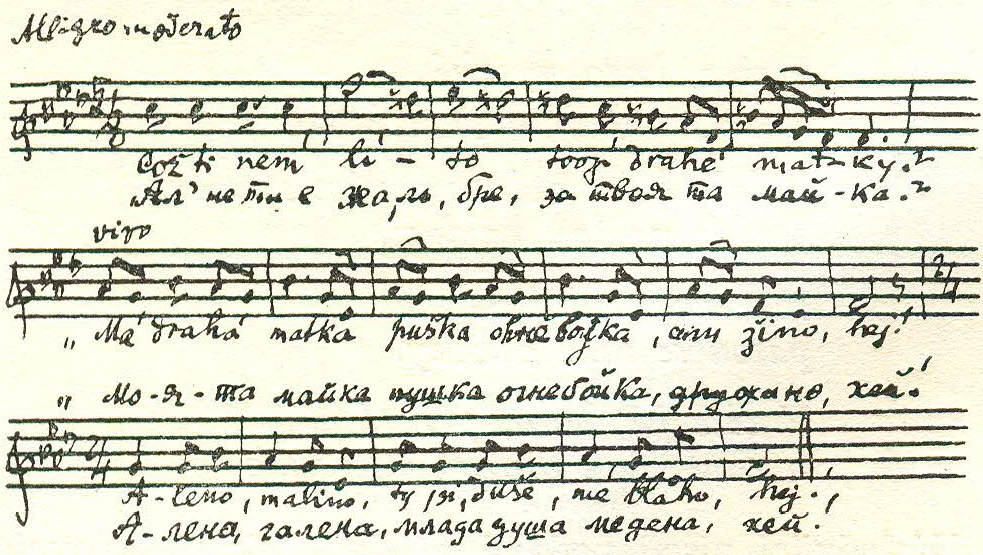 Allegro moderato
Což ti není lí-to tvojí drahé matky?
Ал' не ти е жаль, бре, за твоя та май-ка?
vivo
„ Má drahá matka puška ohněbojka, hej!
„ Мо-я-та майка пушка огнебойка, дружано, хей!
A-leno, malino, ty si, duše, mé bláho, hej!,
А-лена, галена, млада душа медена, хей!